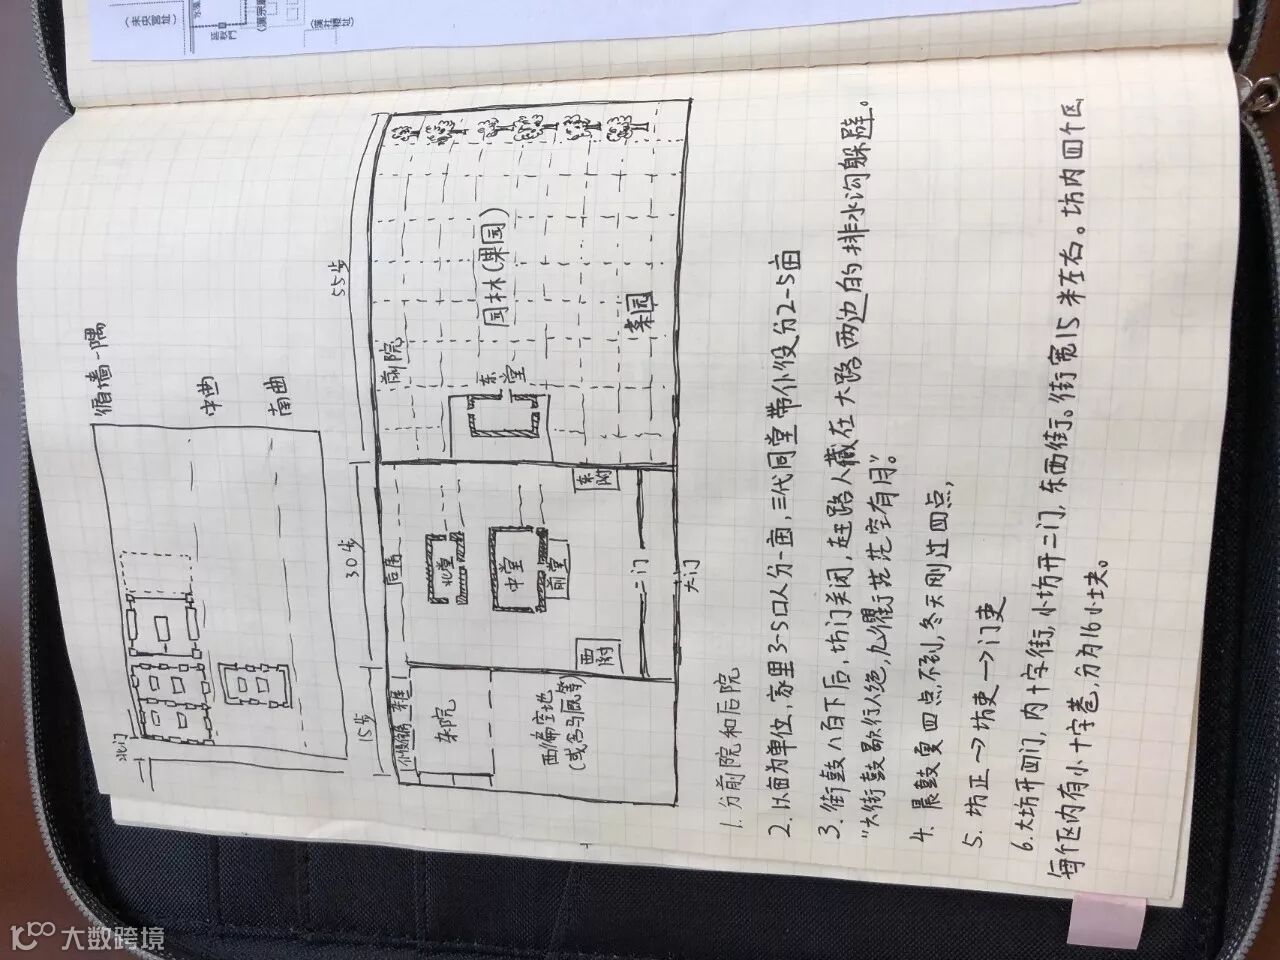 (未央宫址)
循墙一隅
中曲
南曲
北门
55步
30步
15步
前院
园林(果园)
菜园
东堂
后房
北堂
中堂
前堂
东附
西附
二门
大门
杂院
西偏空地
(或含马厩等)
1. 分前院和后院
2. 以亩为单位,家里3-5口人分一亩,三代同堂带仆役分2-5亩
3. 街鼓八百下后,坊门关闭,赶路人藏在大路两边的排水沟躲避。
“六街鼓歇行人绝,九衢茫茫空有月”。
4. 晨鼓夏四点不到,冬天刚过四点,
5. 坊正→坊吏→门吏
6. 大坊开四门,内十字街,小坊开二门,东西街。街宽15米左右。坊内四个区
每个区内有小十字巷,分为16小块。
大数跨境